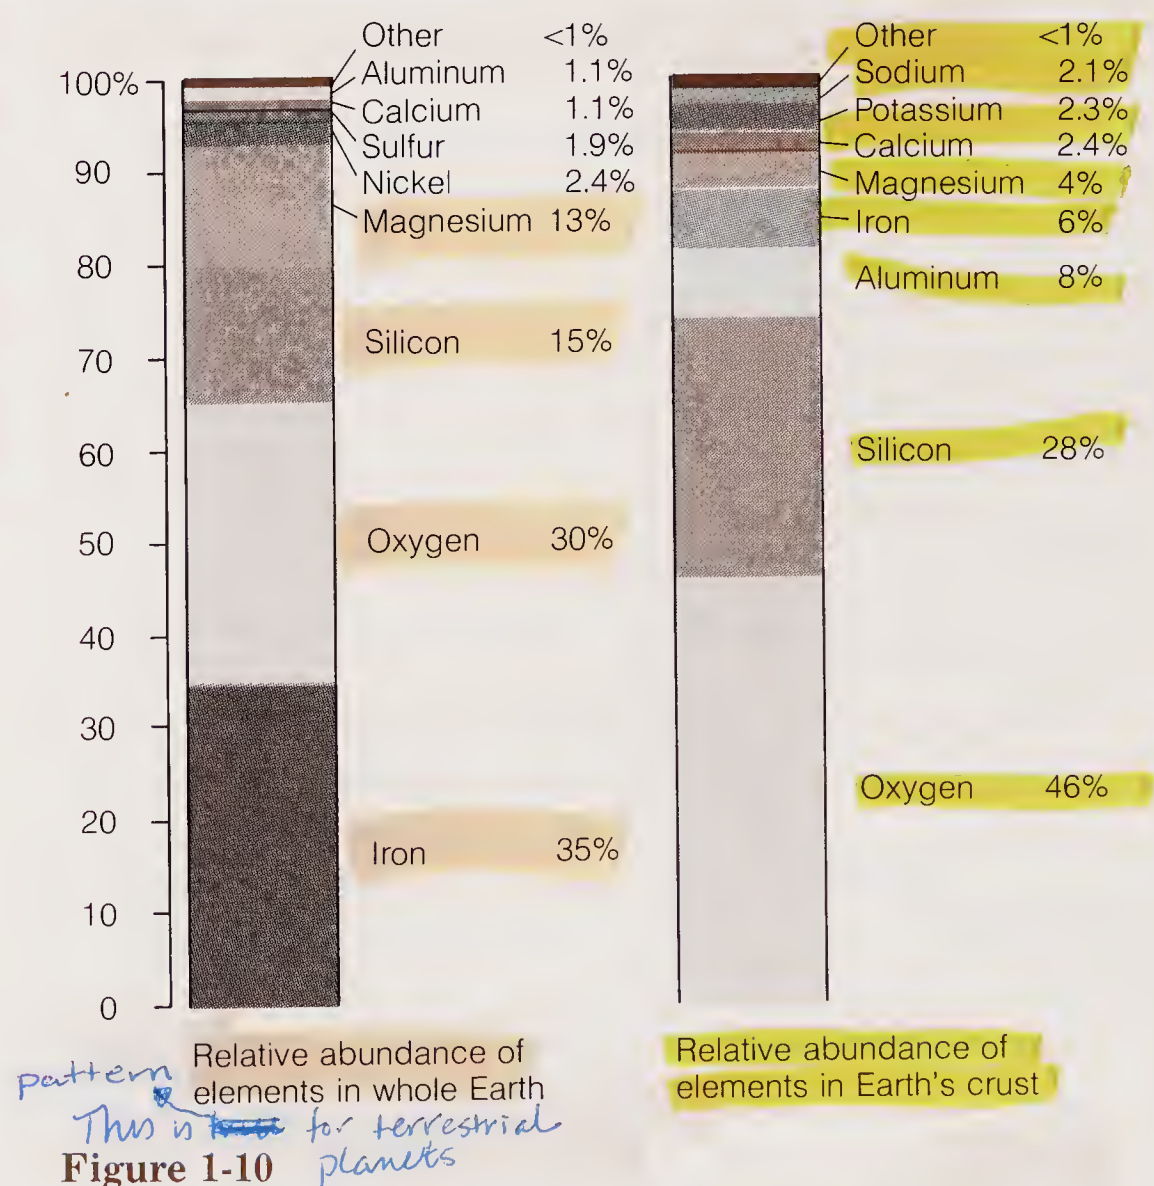 Other <1%
Aluminum 1.1%
Calcium 1.1%
Sulfur 1.9%
Nickel 2.4%
Magnesium 13%
Silicon 15%
Oxygen 30%
Iron 35%
100%
90
80
70
60
50
40
30
20
10
0
Relative abundance of
elements in whole Earth
Other <1%
Sodium 2.1%
Potassium 2.3%
Calcium 2.4%
Magnesium 4%
Iron 6%
Aluminum 8%
Silicon 28%
Oxygen 46%
Relative abundance of
elements in Earth's crust
pattern
This is for terrestrial
planets
Figure 1-10